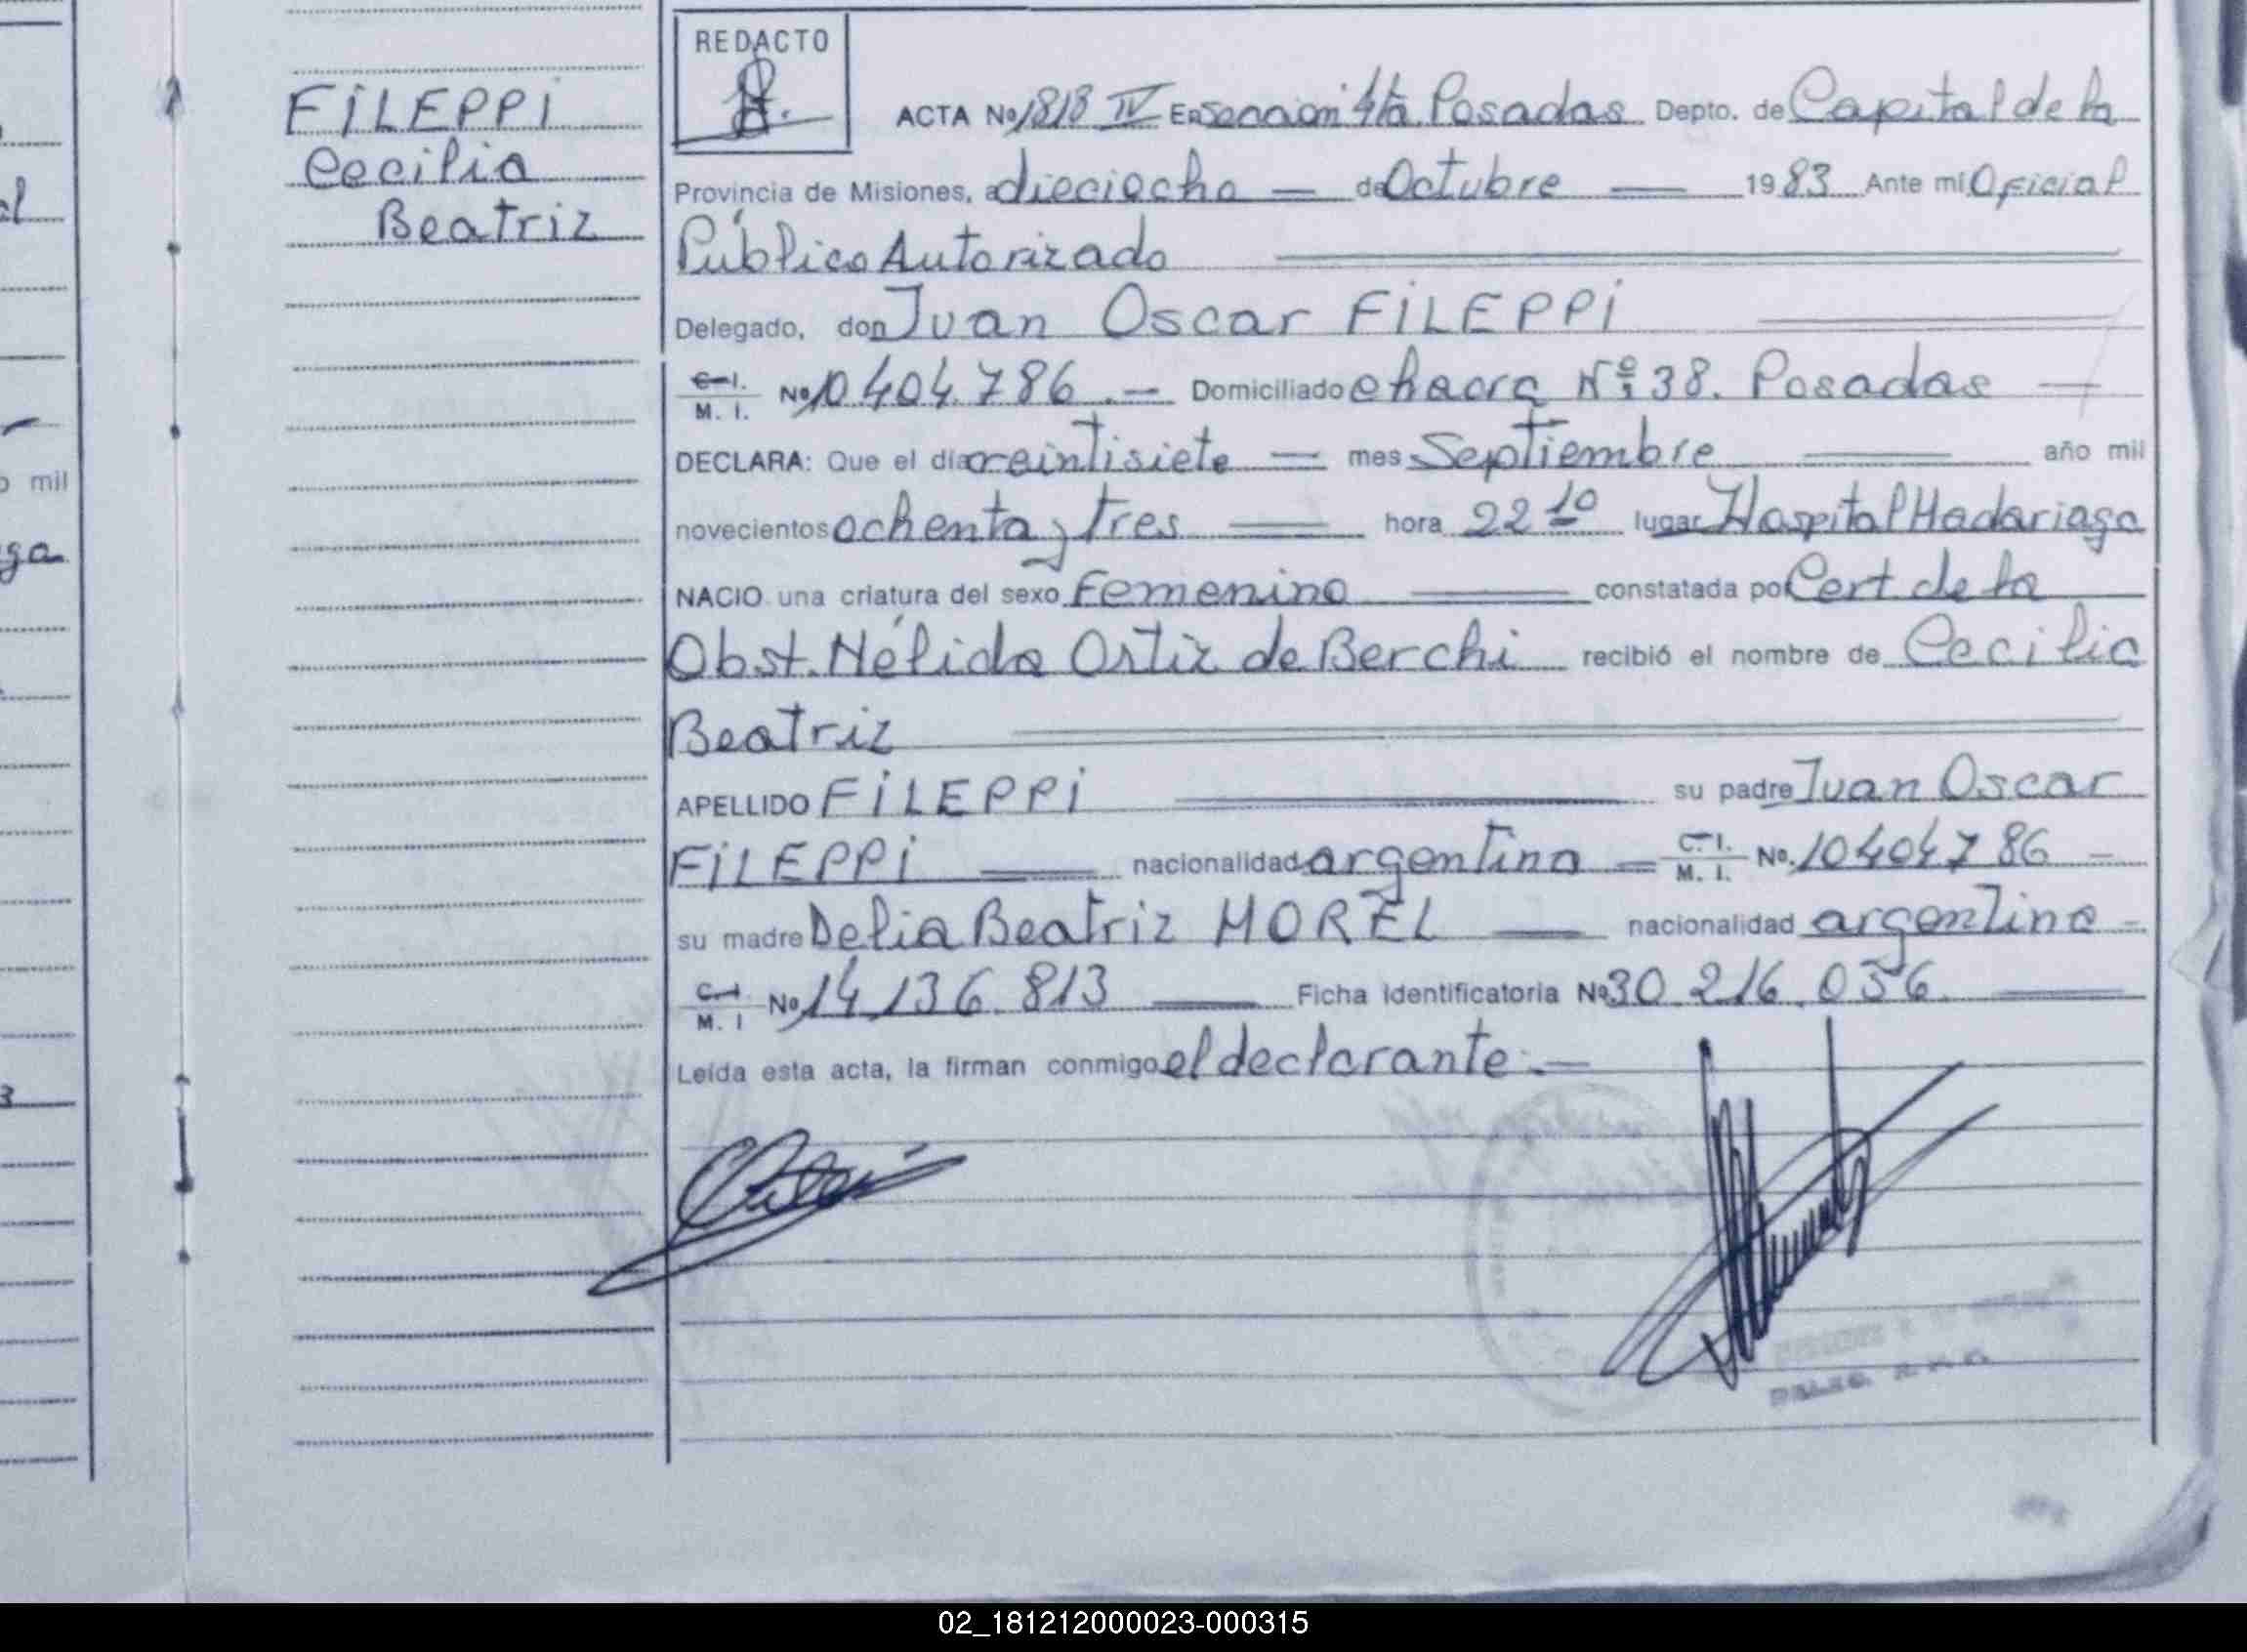 FILEPPI
Cecilia
Beatriz
REDACTO
ACTA Nº 1818 IV En sección 4ta Posadas Depto. de Capital de la
Provincia de Misiones, a dieciocho — de Octubre — 1983 Ante mí Oficial
Público Autorizado
Delegado, don Juan Oscar FILEPPI
C.I. M. I. Nº 10.404.786.— Domiciliado chacra Nº 38. Posadas —
DECLARA: Que el día veintisiete — mes Septiembre — año mil
novecientos ochenta y tres — hora 22 10 lugar Hospital Madariaga
NACIO una criatura del sexo Femenino — constatada por Cert de la
Obst. Nélida Ortiz de Berchi recibió el nombre de Cecilia
Beatriz
APELLIDO FILEPPI — su padre Juan Oscar
FILEPPI — nacionalidad argentina — C.I. M. I. Nº. 10404786 —
su madre Delia Beatriz MOREL — nacionalidad argentina —
C.I. M. I Nº 14.136.813 — Ficha Identificatoria Nº 30.216.056.—
Leída esta acta, la firman conmigo el declarante.—
o mil
ga
02_181212000023-000315